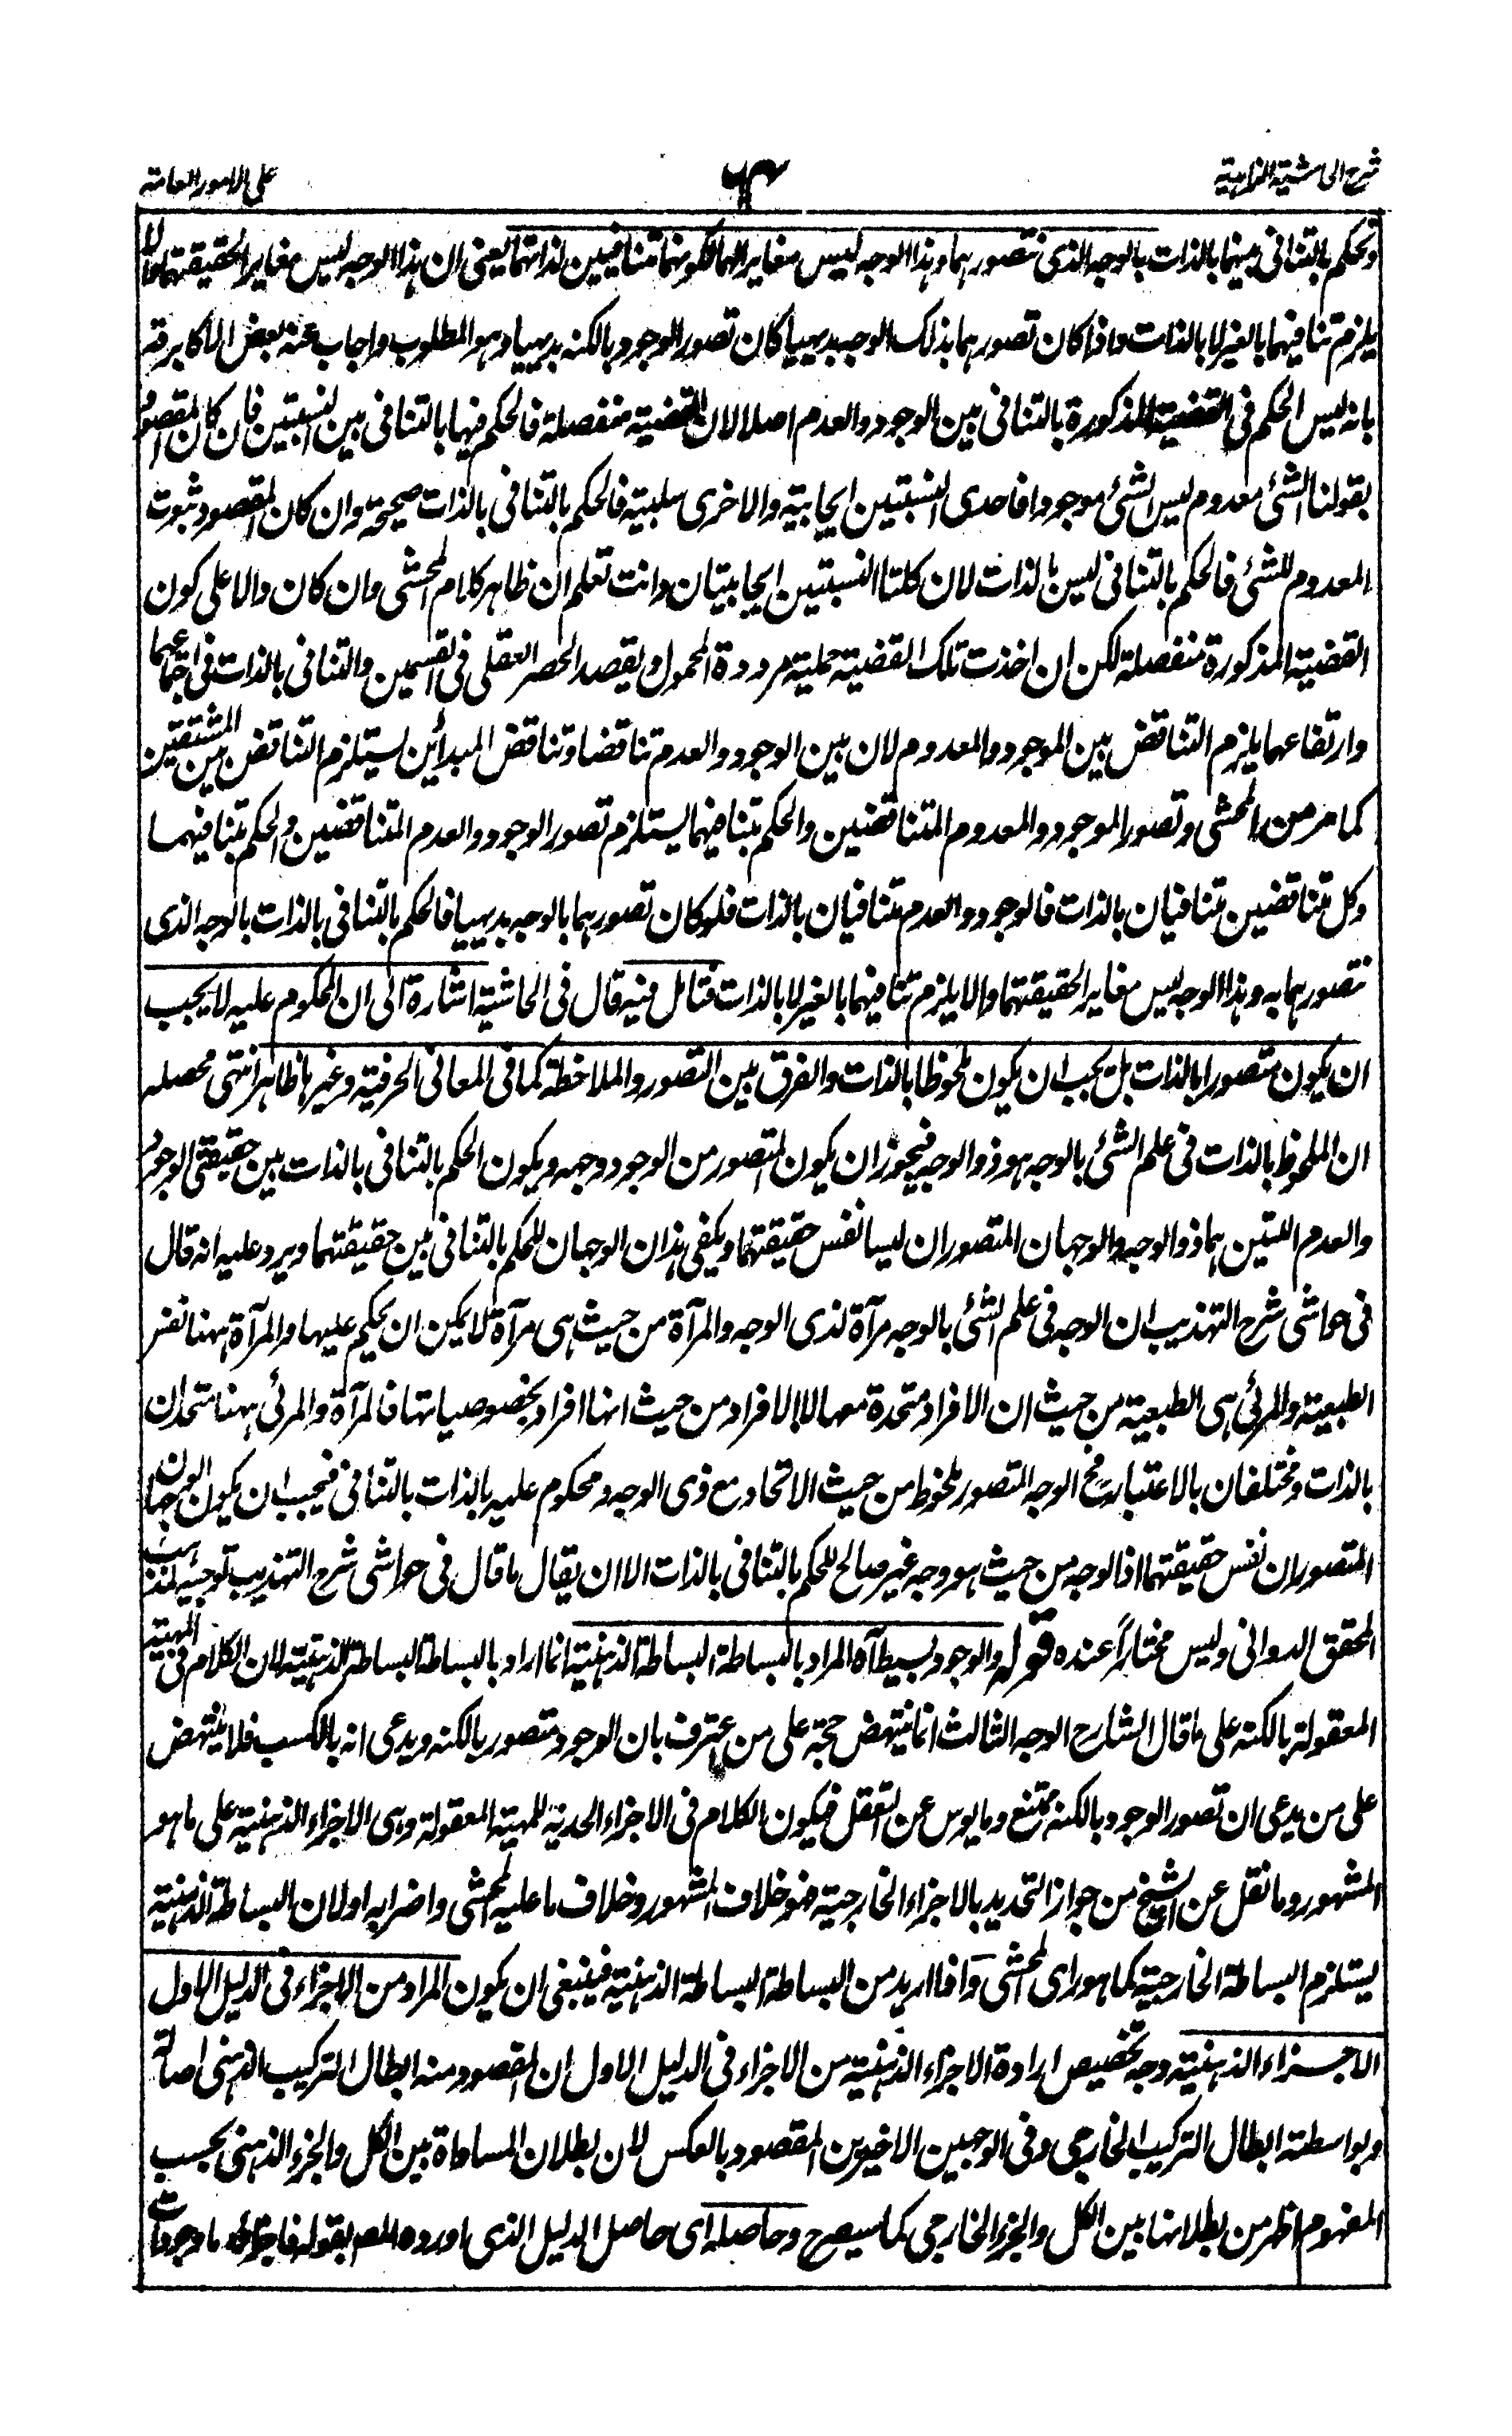 شرح الحاشية الزاهدية
٦٣
على الامور العامة
ونحكم بالتنافى بينهما بالذات بالوجه الذى نتصورهما وهذا الوجه ليس مغايرا لهما لكونهما متنافيين لذاتهما يعنى ان هذا الوجه ليس مغاير الحقيقتهما والا
يلزم تنافيهما بالغير لا بالذات واذا كان تصورهما بذلك الوجه بديهيا كان تصور الوجود بالكنه بديهيا وهو المطلوب واجاب عنه بعض الاكابر قد
بانه ليس الحكم فى القضية المذكورة بالتنافى بين الوجود والعدم اصلا لان القضية منفصلة فالحكم فيها بالتنافى بين النسبتين فان كان المقصود
بقولنا الشئ معدوم ليس الشئ موجودا فاحدى النسبتين ايجابية والاخرى سلبية فالحكم بالتنافى بالذات صحيحة وان كان المقصود ثبوت
المعدوم للشئ فالحكم بالتنافى ليس بالذات لان كلتا النسبتين ايجابيتان وانت تعلم ان ظاهر كلام المحشى وان كان دالا على كون
القضية المذكورة منفصلة لكن ان اخذت تلك القضية حملية مرددة المحمول ويقصد الحصر العقلى فى القسمين والتنافى بالذات فى اجتماعهما
وارتفاعهما يلزم التناقض بين الموجود والمعدوم لان بين الوجود والعدم تناقضا وتناقض المبدأين يستلزم التناقض بين المشتقين
كما مر من المحشى وتصور الموجود والمعدوم المتناقضين والحكم بتنافيهما يستلزم تصور الوجود والعدم المتناقضين والحكم بتنافيهما
وكل متناقضين متنافيان بالذات فالوجود والعدم متنافيان بالذات فلو كان تصورهما بالوجه بديهيا فالحكم بالتنافى بالذات بالوجه الذى
نتصورهما به وهذا الوجه ليس مغاير الحقيقتهما والا يلزم تنافيهما بالغير لا بالذات فتامل فيه قال فى الحاشية اشارة الى ان المحكوم عليه لا يجب
ان يكون متصورا بالذات بل يجب ان يكون ملحوظا بالذات والفرق بين التصور والملاحظة كما فى المعانى الحرفية وغيرها ظاهر انتهى محصله
ان الملحوظ بالذات فى علم الشئ بالوجه هو ذو الوجه فيجوز ان يكون المتصور من الوجود وجهه ويكون الحكم بالتنافى بالذات بين حقيقتى الوجود
والعدم اللتين هما ذو الوجه والوجهان المتصوران ليسا نفس حقيقتهما ويكفى هذان الوجهان للحكم بالتنافى بين حقيقتهما ويرد عليه انه قال
فى حواشى شرح التهذيب ان الوجه فى علم الشئ بالوجه مرآة لذى الوجه والمرآة من حيث هى مرآة لا يمكن ان يحكم عليها والمرآة ههنا نفس
الطبيعة والمرئى هى الطبيعة من حيث ان الافراد متحدة معها لا الافراد من حيث انها افراد بخصوصياتها فالمرآة والمرئى ههنا متحدان
بالذات ومختلفان بالاعتبار فح الوجه المتصور ملحوظ من حيث الاتحاد مع ذى الوجه ومحكوم عليه بالذات بالتنافى فيجب ان يكون الوجهان
المتصوران نفس حقيقتهما اذ الوجه من حيث هو وجه غير صالح للحكم بالتنافى بالذات الا ان يقال ما قال فى حواشى شرح التهذيب توجيه لمذهب
المحقق الدوانى وليس مختارا عنده قوله والوجود بسيط آه المراد بالبساطة البساطة الذهنية انما اراد بالبساطة البساطة الذهنية لان الكلام فى المهية
المعقولة بالكنه على ما قال الشارح الوجه الثالث انما ينتهض حجة على من يعترف بان الوجود متصور بالكنه ويدعى انه بالكسب فلا ينتهض
على من يدعى ان تصور الوجود بالكنه ممتنع ومايوس عن التعقل فيكون الكلام فى الاجزاء الحدية للمهية المعقولة وهى الاجزاء الذهنية على ما هو
المشهور وما نقل عن الشيخ من جواز التحديد بالاجزاء الخارجية فهو خلاف المشهور وخلاف ما عليه المحشى واضرابه او لان البساطة الذهنية
يستلزم البساطة الخارجية كما هو راى المحشى واذا اريد من البساطة البساطة الذهنية فينبغى ان يكون المراد من الاجزاء فى الدليل الاول
الاجزاء الذهنية وجه تخصيص ارادة الاجزاء الذهنية من الاجزاء فى الدليل الاول ان المقصود منه ابطال التركيب الذهنى اصالة
وبواسطته ابطال التركيب الخارجى وفى الوجهين الاخيرين المقصود بالعكس لان بطلان المساواة بين الكل والجزء الذهنى بحسب
المفهوم اظهر من بطلانها بين الكل والجزء الخارجى كما سيصرح وحاصله اى حاصل الدليل الذى اورده المصـ بقوله فاجزاؤه اما وجودات